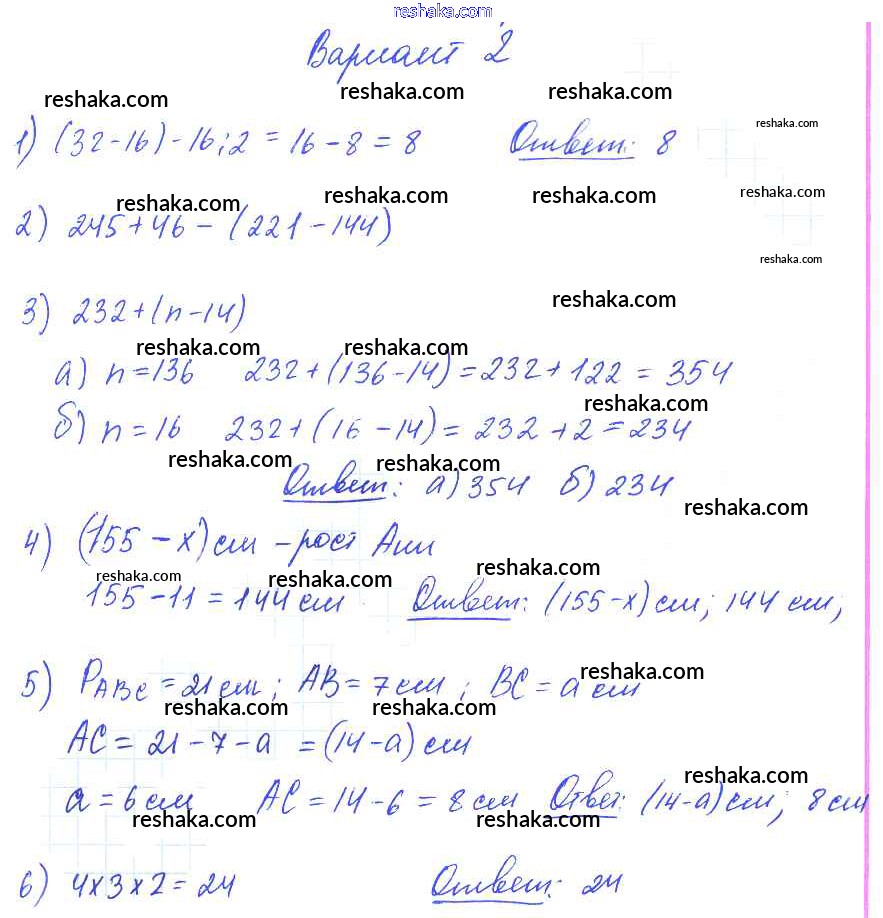 reshaka.com
Вариант 2
reshaka.com reshaka.com reshaka.com
1) (32-16)-16:2 = 16-8 = 8 Ответ: 8 reshaka.com
reshaka.com reshaka.com reshaka.com reshaka.com
2) 245+46-(221-144)
reshaka.com
3) 232+(n-14) reshaka.com
reshaka.com reshaka.com
а) n=136 232+(136-14)=232+122=354
reshaka.com
б) n=16 232+(16-14)=232+2=234
reshaka.com reshaka.com
Ответ: а) 354 б) 234
reshaka.com
4) (155-x) см - рост Ани
reshaka.com reshaka.com reshaka.com
155-11=144 см Ответ: (155-x) см; 144 см;
5) PABC=21 см; AB=7 см; BC=a см reshaka.com
reshaka.com reshaka.com
AC=21-7-a =(14-a) см
reshaka.com
a=6 см AC=14-6=8 см Ответ: (14-a) см; 8 см
reshaka.com reshaka.com
6) 4x3x2=24 Ответ: 24